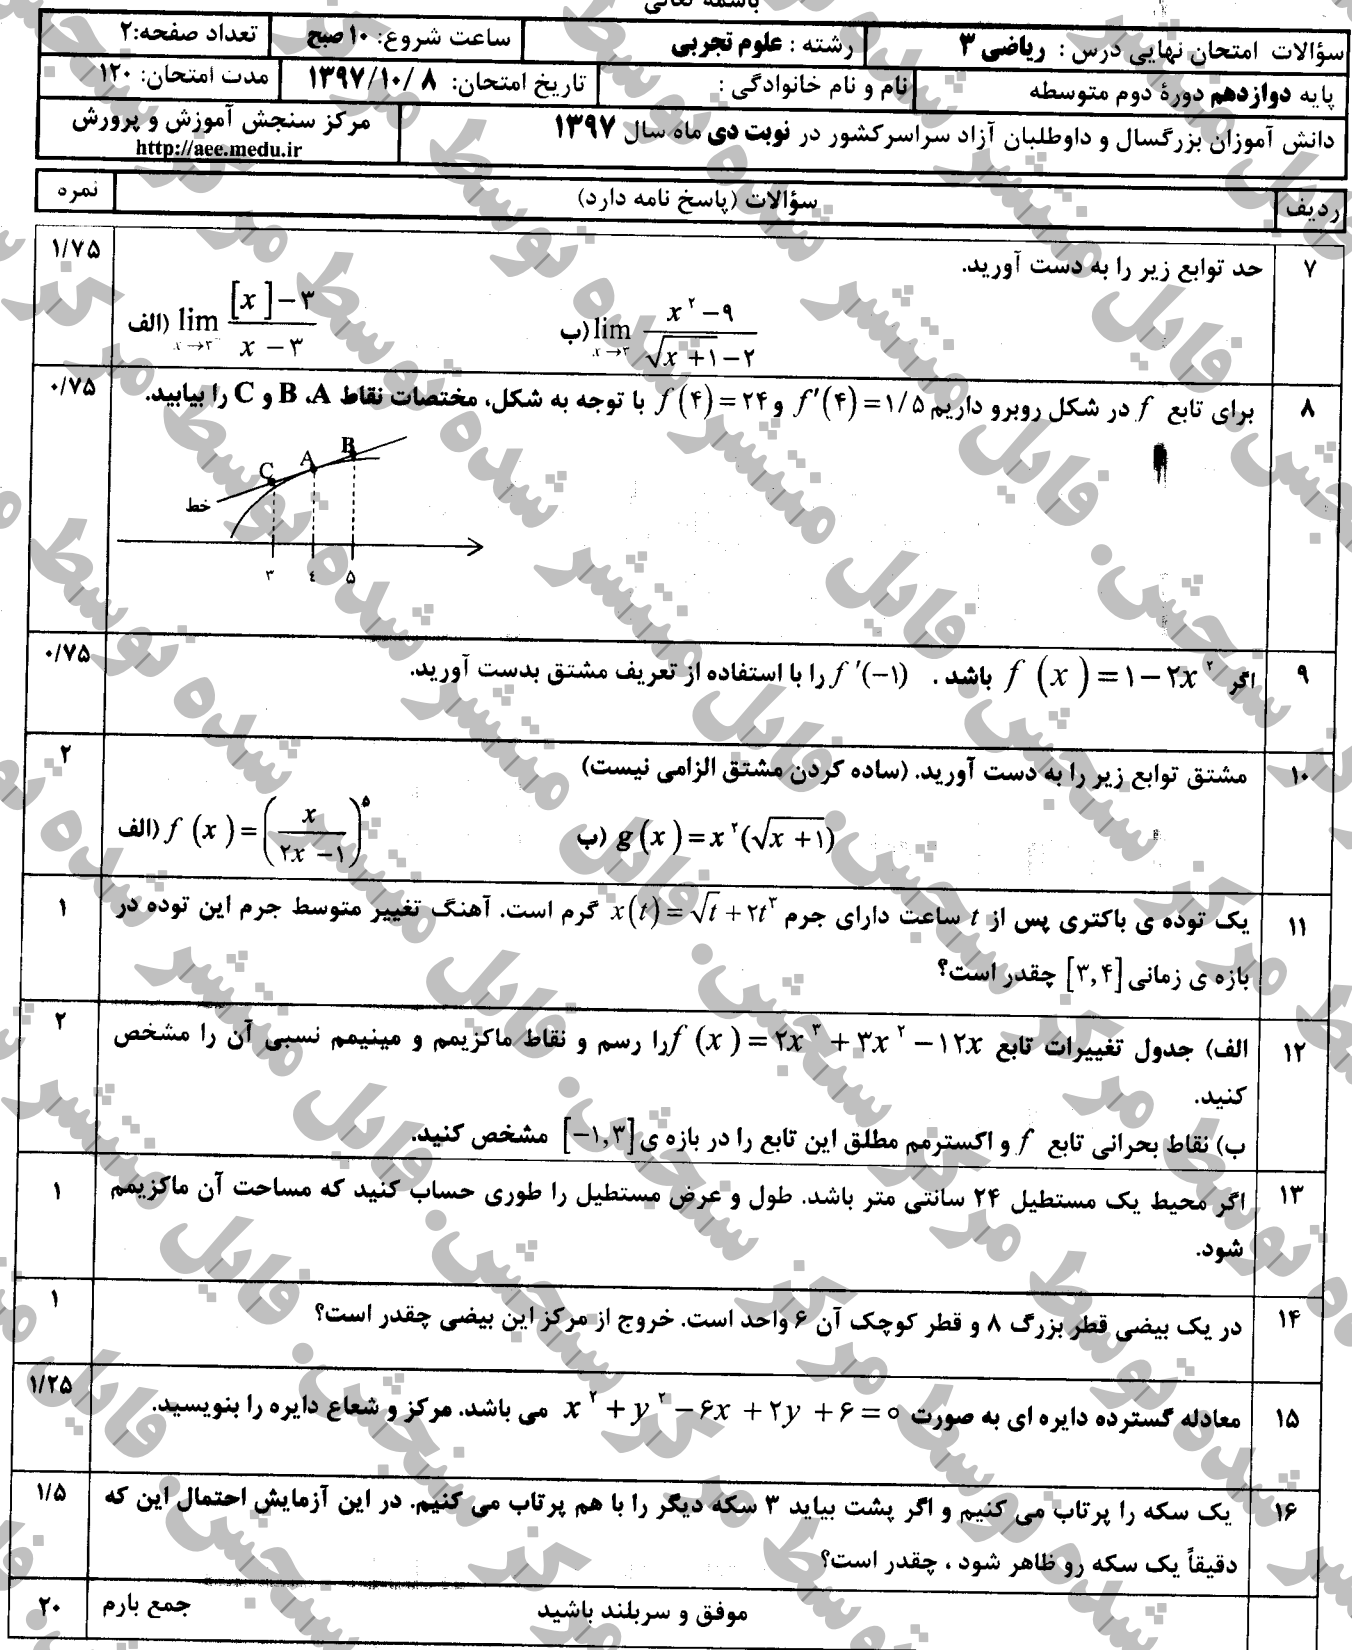 باسمه تعالی
سؤالات امتحان نهایی درس : ریاضی ۳ رشته : علوم تجربی ساعت شروع: ۱۰ صبح تعداد صفحه:۲
پایه دوازدهم دورهٔ دوم متوسطه نام و نام خانوادگی : تاریخ امتحان: ۸ /۱۳۹۷/۱۰ مدت امتحان: ۱۲۰
دانش آموزان بزرگسال و داوطلبان آزاد سراسرکشور در نوبت دی ماه سال ۱۳۹۷ مرکز سنجش آموزش و پرورش
http://aee.medu.ir
ردیف سؤالات (پاسخ نامه دارد) نمره
۷ حد توابع زیر را به دست آورید. ۱/۷۵
الف) lim x→۳⁻ ([x]−۳)/(x−۳) ب) lim x→۳ (x²−۹)/(√(x+۱)−۲)
۸ برای تابع f در شکل روبرو داریم f′(۴)=۱/۵ و f(۴)=۲۴ با توجه به شکل، مختصات نقاط A، B و C را بیابید. ۰/۷۵
B
A
C
خط
۳ ٤ ۵
۹ اگر f(x)=۱−۲x² باشد . f′(−۱) را با استفاده از تعریف مشتق بدست آورید. ۰/۷۵
۱۰ مشتق توابع زیر را به دست آورید. (ساده کردن مشتق الزامی نیست) ۲
الف) f(x)=(x/(۲x−۱))⁵ ب) g(x)=x²(√(x+۱))
۱۱ یک توده ی باکتری پس از t ساعت دارای جرم x(t)=√t+۲t³ گرم است. آهنگ تغییر متوسط جرم این توده در ۱
بازه ی زمانی [۳,۴] چقدر است؟
۱۲ الف) جدول تغییرات تابع f(x)=۲x³+۳x²−۱۲x را رسم و نقاط ماکزیمم و مینیمم نسبی آن را مشخص ۲
کنید.
ب) نقاط بحرانی تابع f و اکسترمم مطلق این تابع را در بازه ی [−۱,۳] مشخص کنید.
۱۳ اگر محیط یک مستطیل ۲۴ سانتی متر باشد. طول و عرض مستطیل را طوری حساب کنید که مساحت آن ماکزیمم ۱
شود.
۱۴ در یک بیضی قطر بزرگ ۸ و قطر کوچک آن ۶ واحد است. خروج از مرکز این بیضی چقدر است؟ ۱
۱۵ معادله گسترده دایره ای به صورت x²+y²−۶x+۲y+۶=۰ می باشد. مرکز و شعاع دایره را بنویسید. ۱/۲۵
۱۶ یک سکه را پرتاب می کنیم و اگر پشت بیاید ۳ سکه دیگر را با هم پرتاب می کنیم. در این آزمایش احتمال این که ۱/۵
دقیقاً یک سکه رو ظاهر شود ، چقدر است؟
موفق و سربلند باشید جمع بارم ۲۰